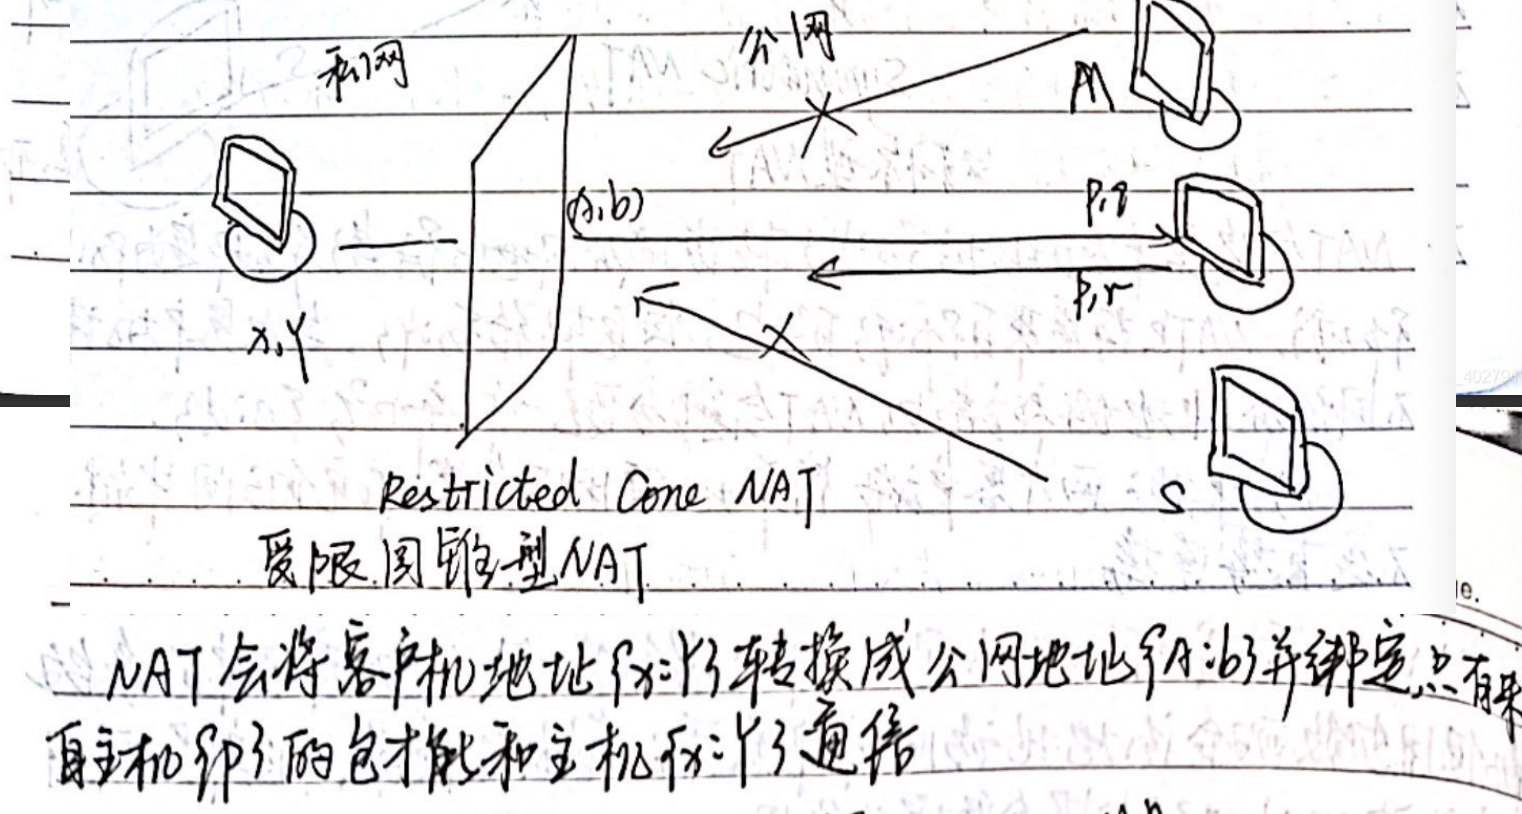 私网
公网
M
(A,b)
P,q
P,r
X,Y
S
Restricted Cone NAT
受限圆锥型NAT
NAT会将客户机地址{X:Y}转换成公网地址{A:b}并绑定,只有来
自主机{P}的包才能和主机{X:Y}通信
le.
_40279